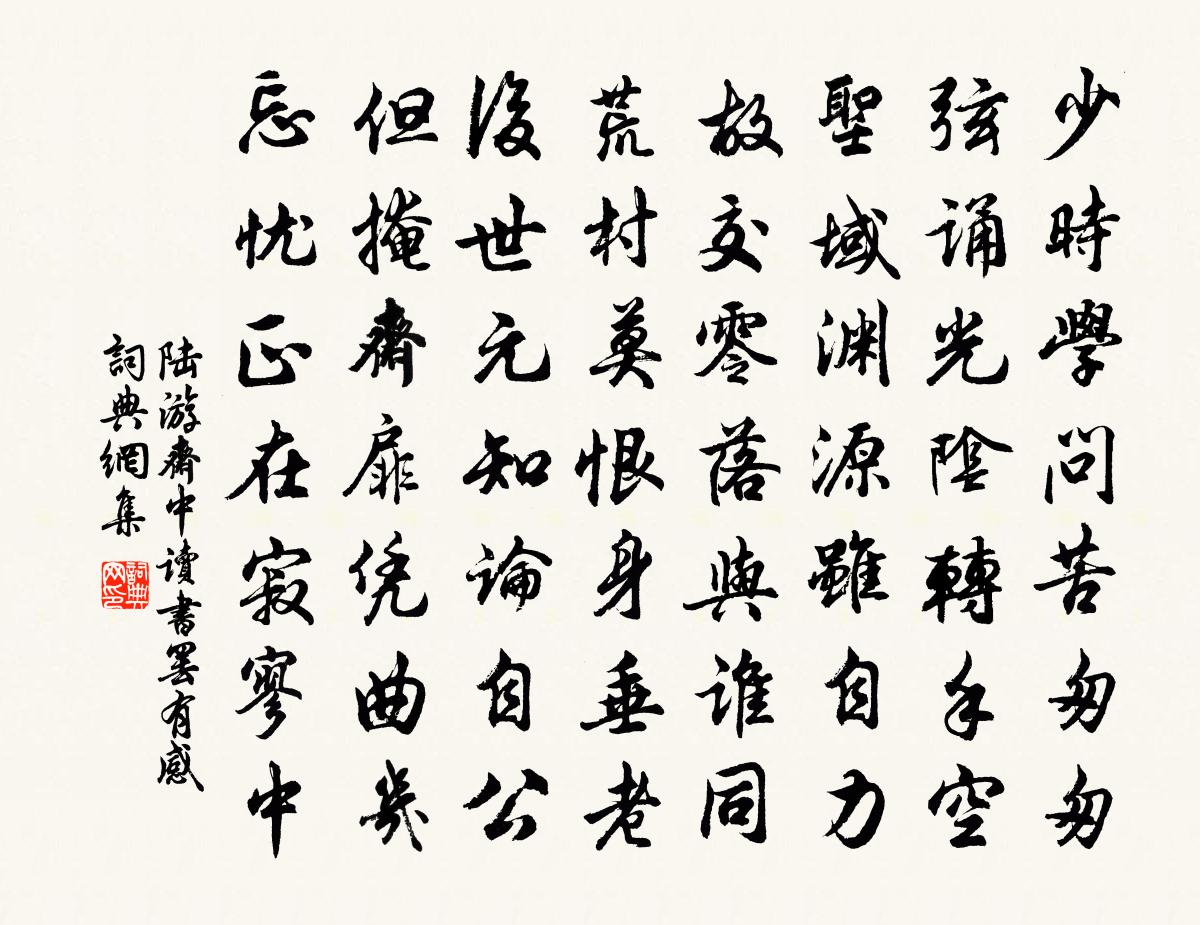 少時學問苦匆匆
弦誦光陰轉手空
聖域渊源雖自力
故交零落與誰同
荒村莫恨身垂老
後世元知論自公
但掩齋扉凭曲幾
忘忧正在寂寥中
陆游齋中讀書罢有感
詞典網集
詞典网印